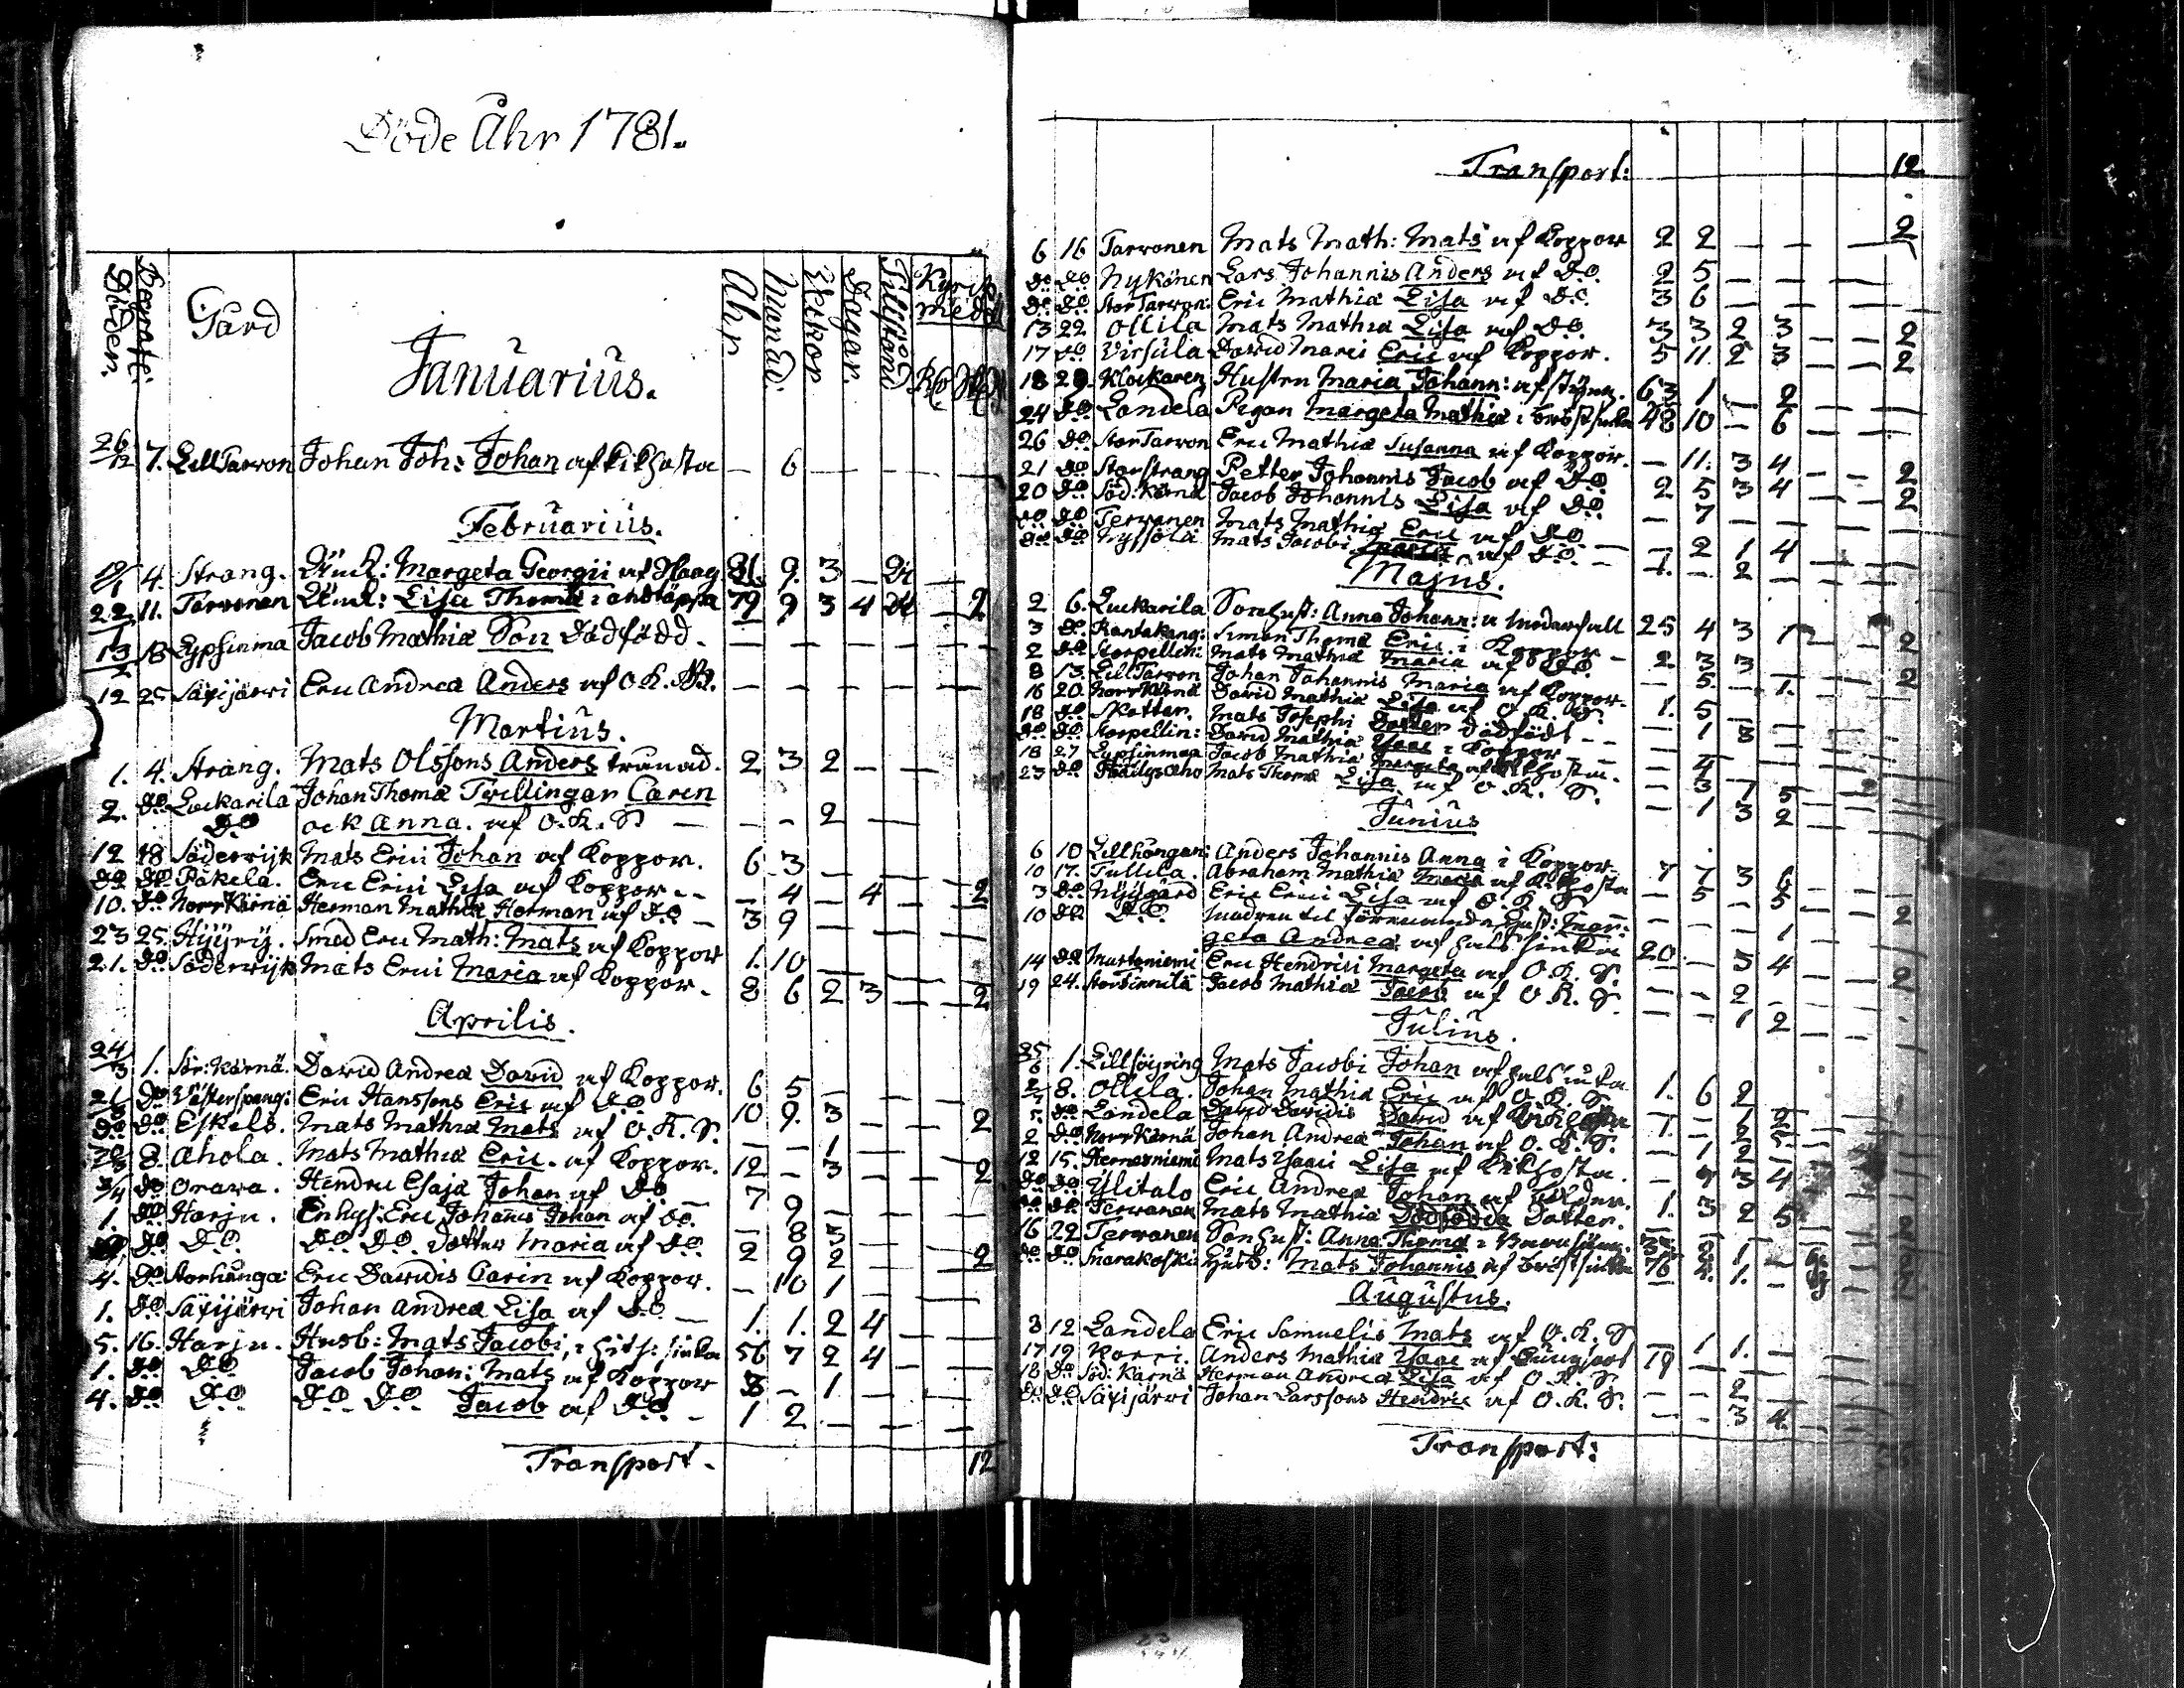 Döde Åhr 1781.
Döden. Begrafn: Gård Åhr. Månad. Wekor Dagar. Tillstånd Kyrk medel
Januarius.
26/12 7. LillTarvon Johan Joh: Johan af kikhosta — 6 — — — —
Februarius.
19/1 4. Strang. Margeta Georgii af Haag 81. 9. 3 —
22 11. Tarvonen Lisa Thomæ i andtäppa 79 9 3 4 — 2
13/2 18 Lypsinma Jacob Mathiæ Son Dödfödd. — — — — — —
12 25 Säxijärvi Eric Andreæ Anders af O. K. — — — — — —
Martius.
1. 4. Strang. Mats Olssons Anders trånad. 2 3 2 — —
2. Do Luckarila Johan Thomæ Twillingar Caren
Do ock Anna. af O. K. S — — — 2 —
12 18 Söderwijk Mats Erici Johan af Koppor. 6 3 — — —
Do Do Påkela. Eric Erici Lisa af Koppor — — 4 — 4 — — 2
10. Do Norr Kärnä Herman Mathiæ Herman af Do — 3 9 — — — —
23 25. Hyyry. Smed Eric Math: Mats af Koppor 1. 10 — — — —
21. Do Söderwijk Mats Erici Maria af Koppor. 8 6 2 3 — — 2
Aprilis.
24/3 1. Sör: Kärnä. David Andreæ David af Koppor. 6 5 — — — —
21/3 Do Västerspang: Eric Hanssons Eric af Do 10 9. 3 — — 2
Do Do Eskels. Mats Mathiæ Mats af O. K. S. — — 1 — — —
8. Ahola. Mats Mathiæ Eric. af Koppor. 12 — 3 — — 2
3/4 Do Orava. Hendric Esajæ Johan af Do — 7 9 — — — —
1. Do Harju. Enkys: Eric Johannis Johan af Do. — 8 3 — — —
Do Do Do. Do. dotter Maria af Do 2 9 2 — — 2
4. Do Storhånga: Eric Davidis Carin af Koppor. — 10 1 — — —
1. Do Säxijärvi Johan Andreæ Lisa af Do — 1. 1. 2 4 — —
5. 16. Harju. Husb: Mats Jacobi, i hits: siuka 56 7 2 4 — —
1. Do Do Jacob Johan: Mats af Koppor 3 — 1 — — —
4. Do Do Do. Do. Jacob af Do. — 1 2 — — — —
Transport. 12
Transport: 12
6 16 Tarvonen Mats Math: Mats af Koppor 2 2 — — — 2
Do Do Nykänen Lars Johannis Anders af Do. 2 5 — — — —
Do Do StorTarvon: Eric Mathiæ Lisa af Do. 3 6 — — — —
13 22 Ollila Mats Mathiæ Lisa af Do. 3 3 2 3 — 2
17 Do Virsula David Marci Eric af Koppor. 5 11. 2 3 — 2
18 29. Klockaren Hustru Maria Johann: af styng. 63 1 — 2 — —
24 Do Landela Pigan Margeta Mathiæ i bröstsiuka 48 10 — 6 — —
26 Do StorTarvon Eric Mathiæ Susanna af Koppor. — 11. 3 4 — 2
21 Do Storstrang Petter Johannis Jacob af Do 2 5 3 4 — 2
20 Do Söd: Kärnä Jacob Johannis Lisa af Do — 7 — — — —
Do Do Tervanen Mats Mathiæ Eric af Do — — 2 1 4 — —
Do Do Nyssölä Mats Jacobi af Do. — 1. — 2 — — —
Majus.
2 6. Luckarila Sonhust: Anna Johann: 25 4 3 1 — 2
3 Do Rantakang: Simon Thomæ Eric i Koppor — 2 3 3 — — 2
2 Do Storpellin: Mats Mathiæ Maria af Do. — 5. — 1. — —
8 13. LillTarvon Johan Johannis Maria af Koppor. 1. 5 — — —
16 20. Norr Kärnä David Mathiæ Lisa af O. K. S. — 1 3 — —
18 Do Skatter. Mats Josephi Dotter dödfödt — — — —
Do Do Storpellin: David Mathiæ Isaac i Koppor — 4 — —
18 27 Lypsinmaa Jacob Mathiæ Margeta af kikhosta. — 3 7 5 —
23 Do Mats Thomæ Lisa af O. K. S. — 1 3 2 —
Junius
6 10 Lillhångan: Anders Johannis Anna i Koppor 7 7 3 6
10 17. Tullila. Abraham Mathiæ af K.hosta — 5 — 5 — 2
3 Do Nygård Eric Erici Lisa af O. K. S. — — — 1 — —
10 Do Do. Modren til förenämnde
geta Andreæ af halssiuka 20 — 3 4 — 2
14 Do Mustaniemi Eric Hendrici Margeta af O. K. S. — — 2 — —
19 24. Jacob Mathiæ Jacob af O. K. S. — — 1 2 — —
Julius.
1. Mats Jacobi Johan af halssiuka 1. 6 2
8. Ollila. Johan Mathiæ Eric af O. K. S.
5. Do Landela David Davidis David af
2 Do Norr Kärnä Johan Andreæ Johan af O. K. S. — 1 2
12 15. Hernesniemi Mats Isaaci Lisa af Kikhosta. — 9 3 4
Do Do Ylitalo Eric Andreæ Johan af 1. 3 2 5
Do Do Tervanen Mats Mathiæ Dödfödda Dotter.
16 22 Tervonen Sonhust: Anna Thomæ
Do Do Snarakoski Mats Johannis af bröstsiuka 76
Augustus.
3 12 Landela Eric Samuelis Mats af O. K. S — 1 1. —
17 19 Korri. Anders Mathiæ Isaac af 19 — — —
18 Do Söd: Kärnä Herman Andreæ Lisa af O. K. S. — — 2 —
Do Do Säxijärvi Johan Larssons Hendric af O. K. S. — — 3 4.
Transport: